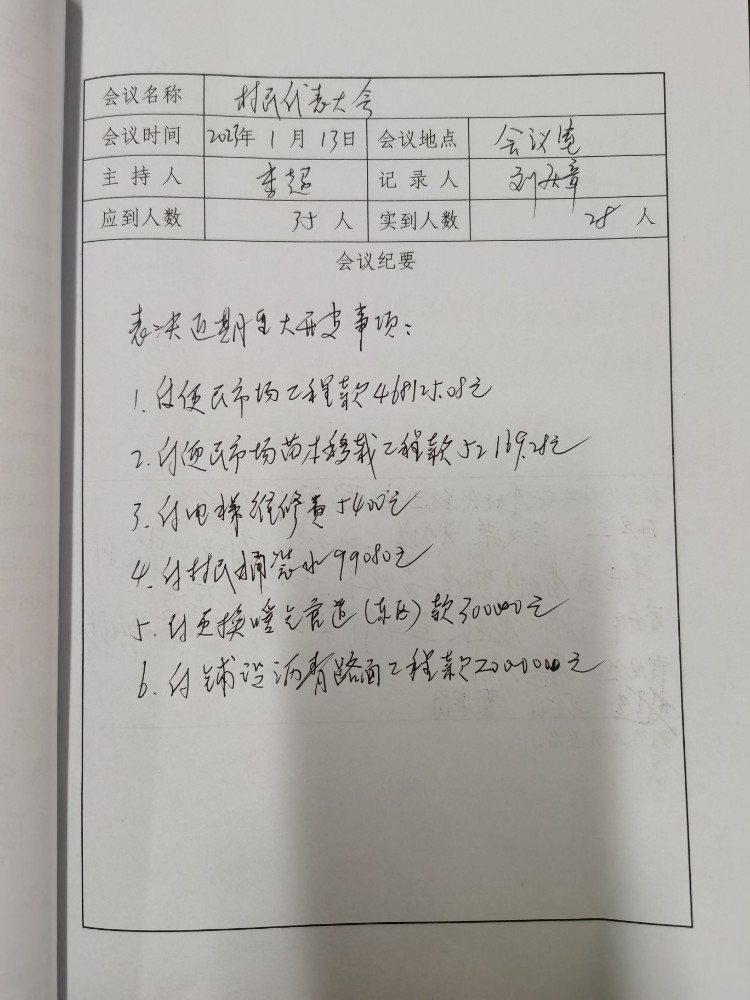 会议名称 村民代表大会
会议时间 2023年 1 月 13日 会议地点 会议室
主 持 人 李超 记 录 人 刘天章
应到人数 35 人 实到人数 28 人
会议纪要
表决近期重大开支事项:
1. 付便民市场工程款468125.08元
2. 付便民市场苗木移栽工程款52169.28元
3. 付电梯维修费5400元
4. 付村民桶装水99080元
5. 付更换暖气管道(东区)款300000元
6. 付铺设沥青路面工程款2000000元